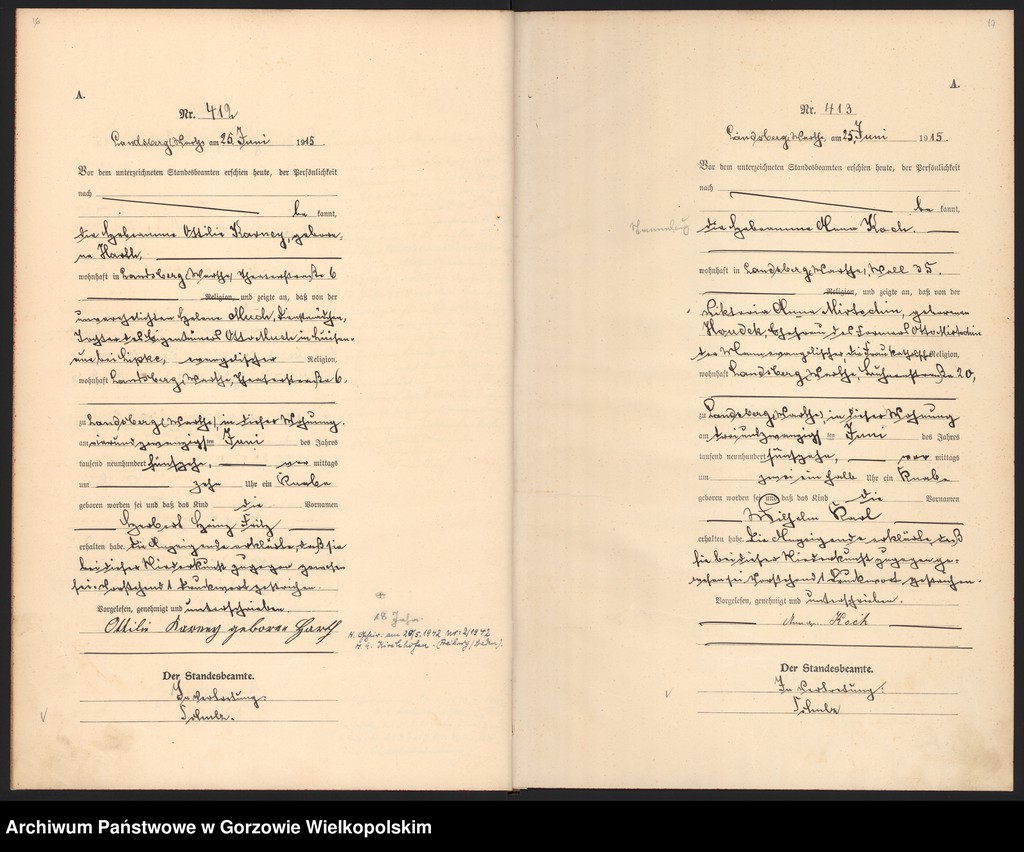 16
A.
Nr. 412
Landsberg, Warthe, am 25. Juni 1915.
Vor dem unterzeichneten Standesbeamten erschien heute, der Persönlichkeit
nach
be kannt,
die Hebeamme Ottilie Karney, gebore-
ne Harth,
wohnhaft in Landsberg, Warthe, Theaterstraße 6
Religion, und zeigte an, daß von der
unverehelichten Helene Much, Dienstmädchen,
Tochter des Eigentümers Otto Much in Luisen-
aue bei Lipke, evangelischer Religion,
wohnhaft Landsberg, Warthe, Theaterstraße 6,
zu Landsberg, Warthe, in dieser Wohnung
am vierundzwanzigsten Juni des Jahres
tausend neunhundert fünfzehn, vor mittags
um zehn Uhr ein Knabe
geboren worden sei und daß das Kind die Vornamen
Herbert Heinz Fritz
erhalten habe. Die Anzeigende erklärte, daß sie
bei dieser Niederkunft zugegen gewesen
sei. Vorstehend 1 Druckwort gestrichen.
Vorgelesen, genehmigt und unterschrieben.
Ottilie Karney geborene Harth
H. Geheir. am 26/5.1942 Nr. 2/1942
St. A. Kirchhofen. (Freiburg/Baden).
Der Standesbeamte.
In Vertretung:
17
A.
Nr. 413
Landsberg, Warthe, am 25. Juni 1915.
Vor dem unterzeichneten Standesbeamten erschien heute, der Persönlichkeit
nach
be kannt,
die Hebeamme Anna Koch.
wohnhaft in Landsberg, Warthe, Wall 35.
Religion, und zeigte an, daß von der
Viktoria Anna Mirtschin, geborenen
Handek, Ehefrau des Formers Otto Mirtschin
der Mann evangelischer, die Frau katholischer Religion,
wohnhaft Landsberg, Warthe, 20,
zu Landsberg, Warthe, in dieser Wohnung
am dreiundzwanzigsten Juni des Jahres
tausend neunhundert fünfzehn, vor mittags
um zwei ein halb Uhr ein Knabe
geboren worden sei und daß das Kind die Vornamen
Wilhelm Karl
erhalten habe. Die Anzeigende erklärte, daß
sie bei dieser Niederkunft zugegen ge-
wesen sei. Vorstehend 1 Druckwort gestrichen.
Vorgelesen, genehmigt und unterschrieben.
Anna Koch
Der Standesbeamte.
In Vertretung:
Archiwum Państwowe w Gorzowie Wielkopolskim